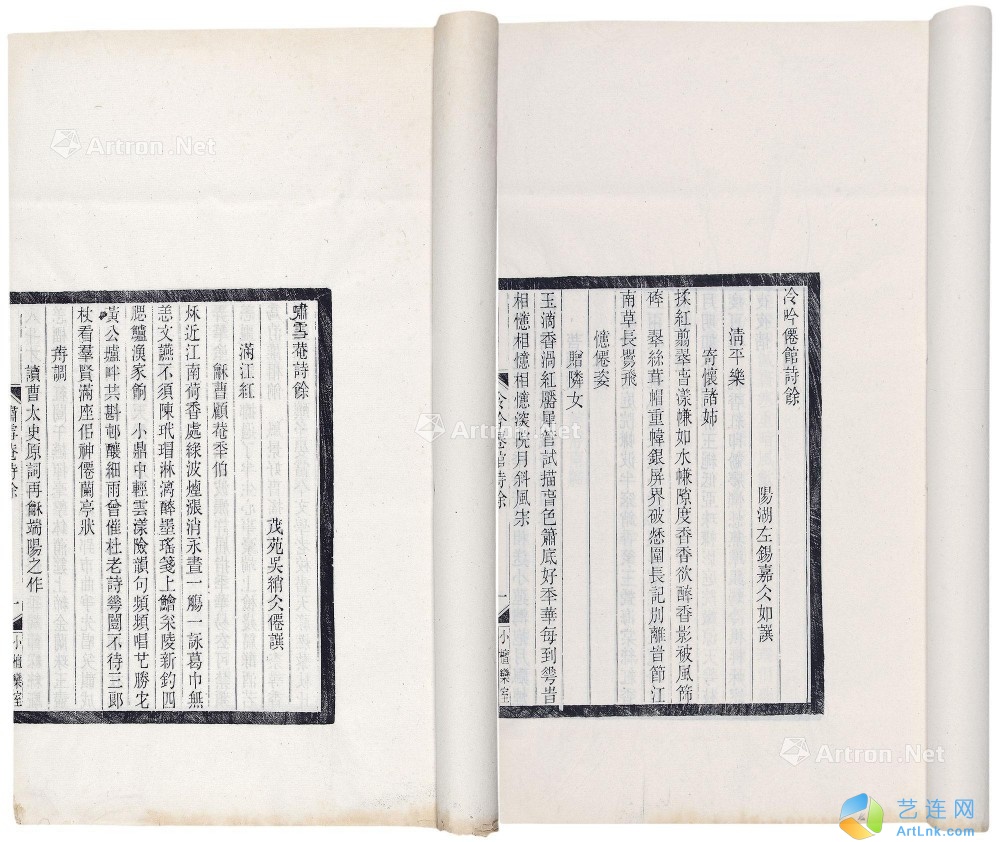 冷吟僊館詩餘
陽湖左錫嘉小如譔
清平樂
寄懷諸姊
揉紅翦翠峕漾㡘如水㡘隙度香香欲醉香影被風篩
裨 翠絲茸帽重幃銀屏界破愁圍長記別離峕節江
南草長鸎飛
憶僊姿
贈隣女
玉滴香渦紅靨犀管試描睂色簫底好秊華每到雩峕
相憶相憶相憶深院月斜風宋
冷吟僊館詩餘
一
小檀欒室
嘯雪菴詩餘
茂苑吳綃仌僊譔
滿江紅
龢曹顧菴秊伯
秌近江南荷香處綠波煙漲消永晝一觴一詠葛巾無
恙文讌不須陳玳瑁淋漓醉墨瑤箋上鱠冞陵新釣四
腮鱸漁家餉 小鼎中輕雲漾險韻句頻頻唱乞勝宅
黃公壚畔共斟邨釀細雨曾催杜老詩雩圖不待三郎
杖看羣賢滿座侶神僊蘭亭狀
歬調
讀曹太史原詞再龢端陽之作
嘯雪菴詩餘
一
小檀欒室
Artron.Net
Artron.Net
Artron.Net
Artron.Net
艺连网
ArtLnk.com